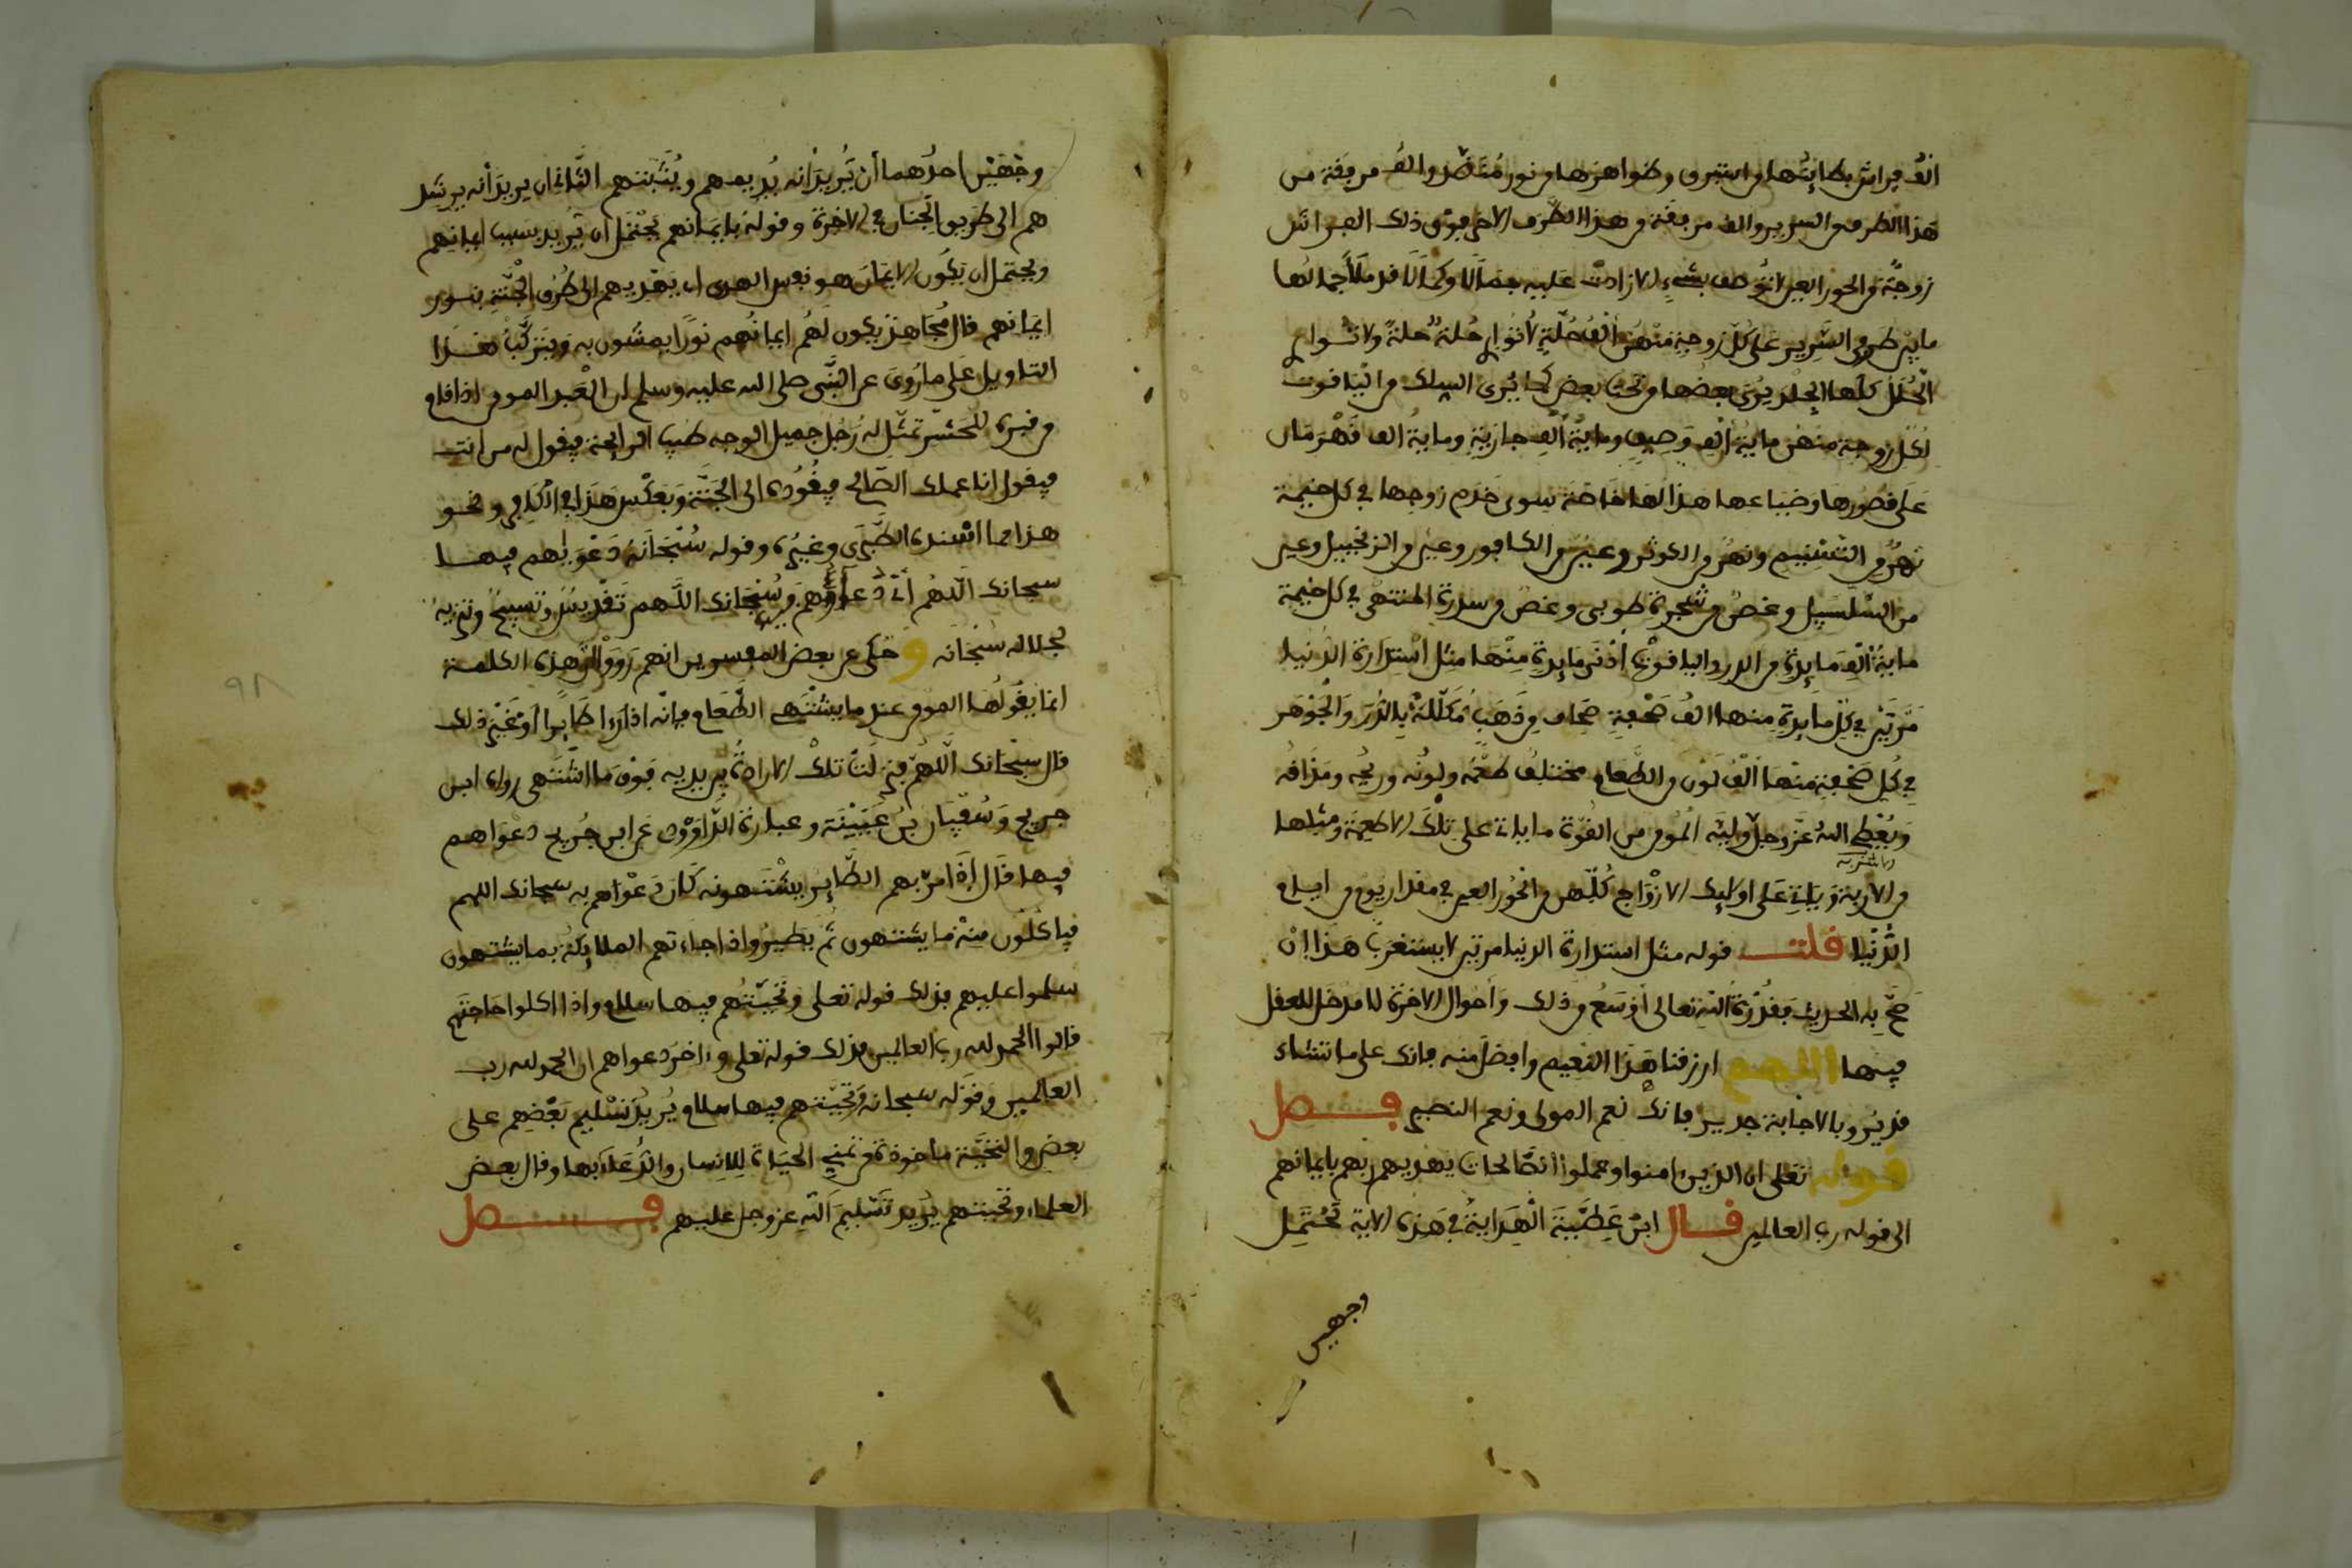 الف فراش بطاينها من استبرق وظواهرها من نور منضد والف مرفقة من
هذا الطرف من السرير والف مرفقة من هذا الطرف الاخر فوق ذلك الفراش
زوجة من الحور العين لا توصف بشيء الا زادت عليه جمالا وكمالا قد ملأ جمالها
ما بين طرفي السرير على كل زوجة منهن الف حلة لا تواري حلة حلة ولا تواري
الحلل كلها الجلد يرى بعضها من تحت بعض كما يرى السلك من الياقوت
لكل زوجة منهن ماية الف وصيف وماية الف جارية وماية الف قهرمان
على قصورها وضياعها هذا لها خاصة سوى خدم زوجها في كل خيمة
نهر من التسنيم ونهر من الكوثر وعين من الكافور وعين من الزنجبيل وعين
من السلسبيل وغصن من شجرة طوبى وغصن من سدرة المنتهى في كل خيمة
ماية الف مايدة من الدر والياقوت ادنى مايدة منها مثل استدارة الدنيا
مرتين في كل مايدة منها الف صحفة صحاف من ذهب مكللة بالدر والجوهر
في كل صحفة منها الف لون من الطعام مختلف طعمه ولونه وريحه ومذاقه
ويعطي الله عز وجل وليه المومن من القوة ما ياتي على تلك الاطعمة ومثلها
من الاشربة وياتي على اوليك الازواج كلهن من الحور العين في مقدار يوم من ايام
الدنيا قلت قوله مثل استدارة الدنيا مرتين لا يستغرب هذا ان
صح به الحديث فقدرة الله تعالى اوسع من ذلك واحوال الاخرة لا مدخل للعقل
فيها اللهم ارزقنا هذا النعيم وافضل منه فانك على ما تشاء
قدير وبالاجابة جدير فانك نعم المولى ونعم النصير فصل
قوله تعلى ان الذين امنوا وعملوا الصالحات يهديهم ربهم بايمانهم
الى قوله رب العالمين قال ابن عطية الهداية في هذه الاية تحتمل
وجهين
وجهين احدهما أن يريد انه يديمهم ويثبتهم الثاني ان يريد أنه يرشد
هم الى طريق الجنان في الاخرة وقوله بايمانهم يحتمل ان يريد بسبب ايمانهم
ويحتمل ان يكون الايمان هو نفس الهدى اي يهديهم الى طرق الجنة بنور
ايمانهم قال مجاهد يكون لهم ايمانهم نورا يمشون به ويتركب هذا
التاويل على ما روي عن النبي صلى الله عليه وسلم ان العبد المومن اذا قام
من قبره للحشر تمثل له رجل جميل الوجه طيب الرايحة فيقول له من انت
فيقول انا عملك الصالح فيقوده الى الجنة وبعكس هذا في الكافر ونحو
هذا مما اسنده الطبري وغيره وقوله سبحانه دعويهم فيها
سبحانك اللهم اي دعاؤهم فيها وسبحانك اللهم تقديس وتسبيح وتنزيه
لجلاله سبحانه وحكى عن بعض المفسرين انهم رووا ان هذه الكلمة
انما يقولها المومن عند ما يشتهي الطعام فانه اذا رءا طايرا او غير ذلك
قال سبحانك اللهم فنزلت تلك الارادة بين يديه فوق ما اشتهى رواه ابن
جريج وسفيان بن عيينة وعبارة الداودي عن ابن جريج دعواهم
فيها قال اذا مر بهم الطاير يشتهونه كان دعواهم به سبحانك اللهم
فياكلون منه ما يشتهون ثم يطير واذا جاءتهم الملايكة بما يشتهون
سلموا عليهم فذلك قوله تعلى وتحيتهم فيها سلام واذا اكلوا حاجتهم
قالوا الحمد لله رب العالمين فذلك قوله تعلى واخر دعواهم ان الحمد لله رب
العالمين وقوله سبحانه وتحيتهم فيها سلام يريد تسليم بعضهم على
بعض والتحية ماخوذة من تمني الحياة للانسان والدعاء بها وقال بعض
العلماء وتحيتهم يريد تسليم الله عز وجل عليهم فصل
٩٨